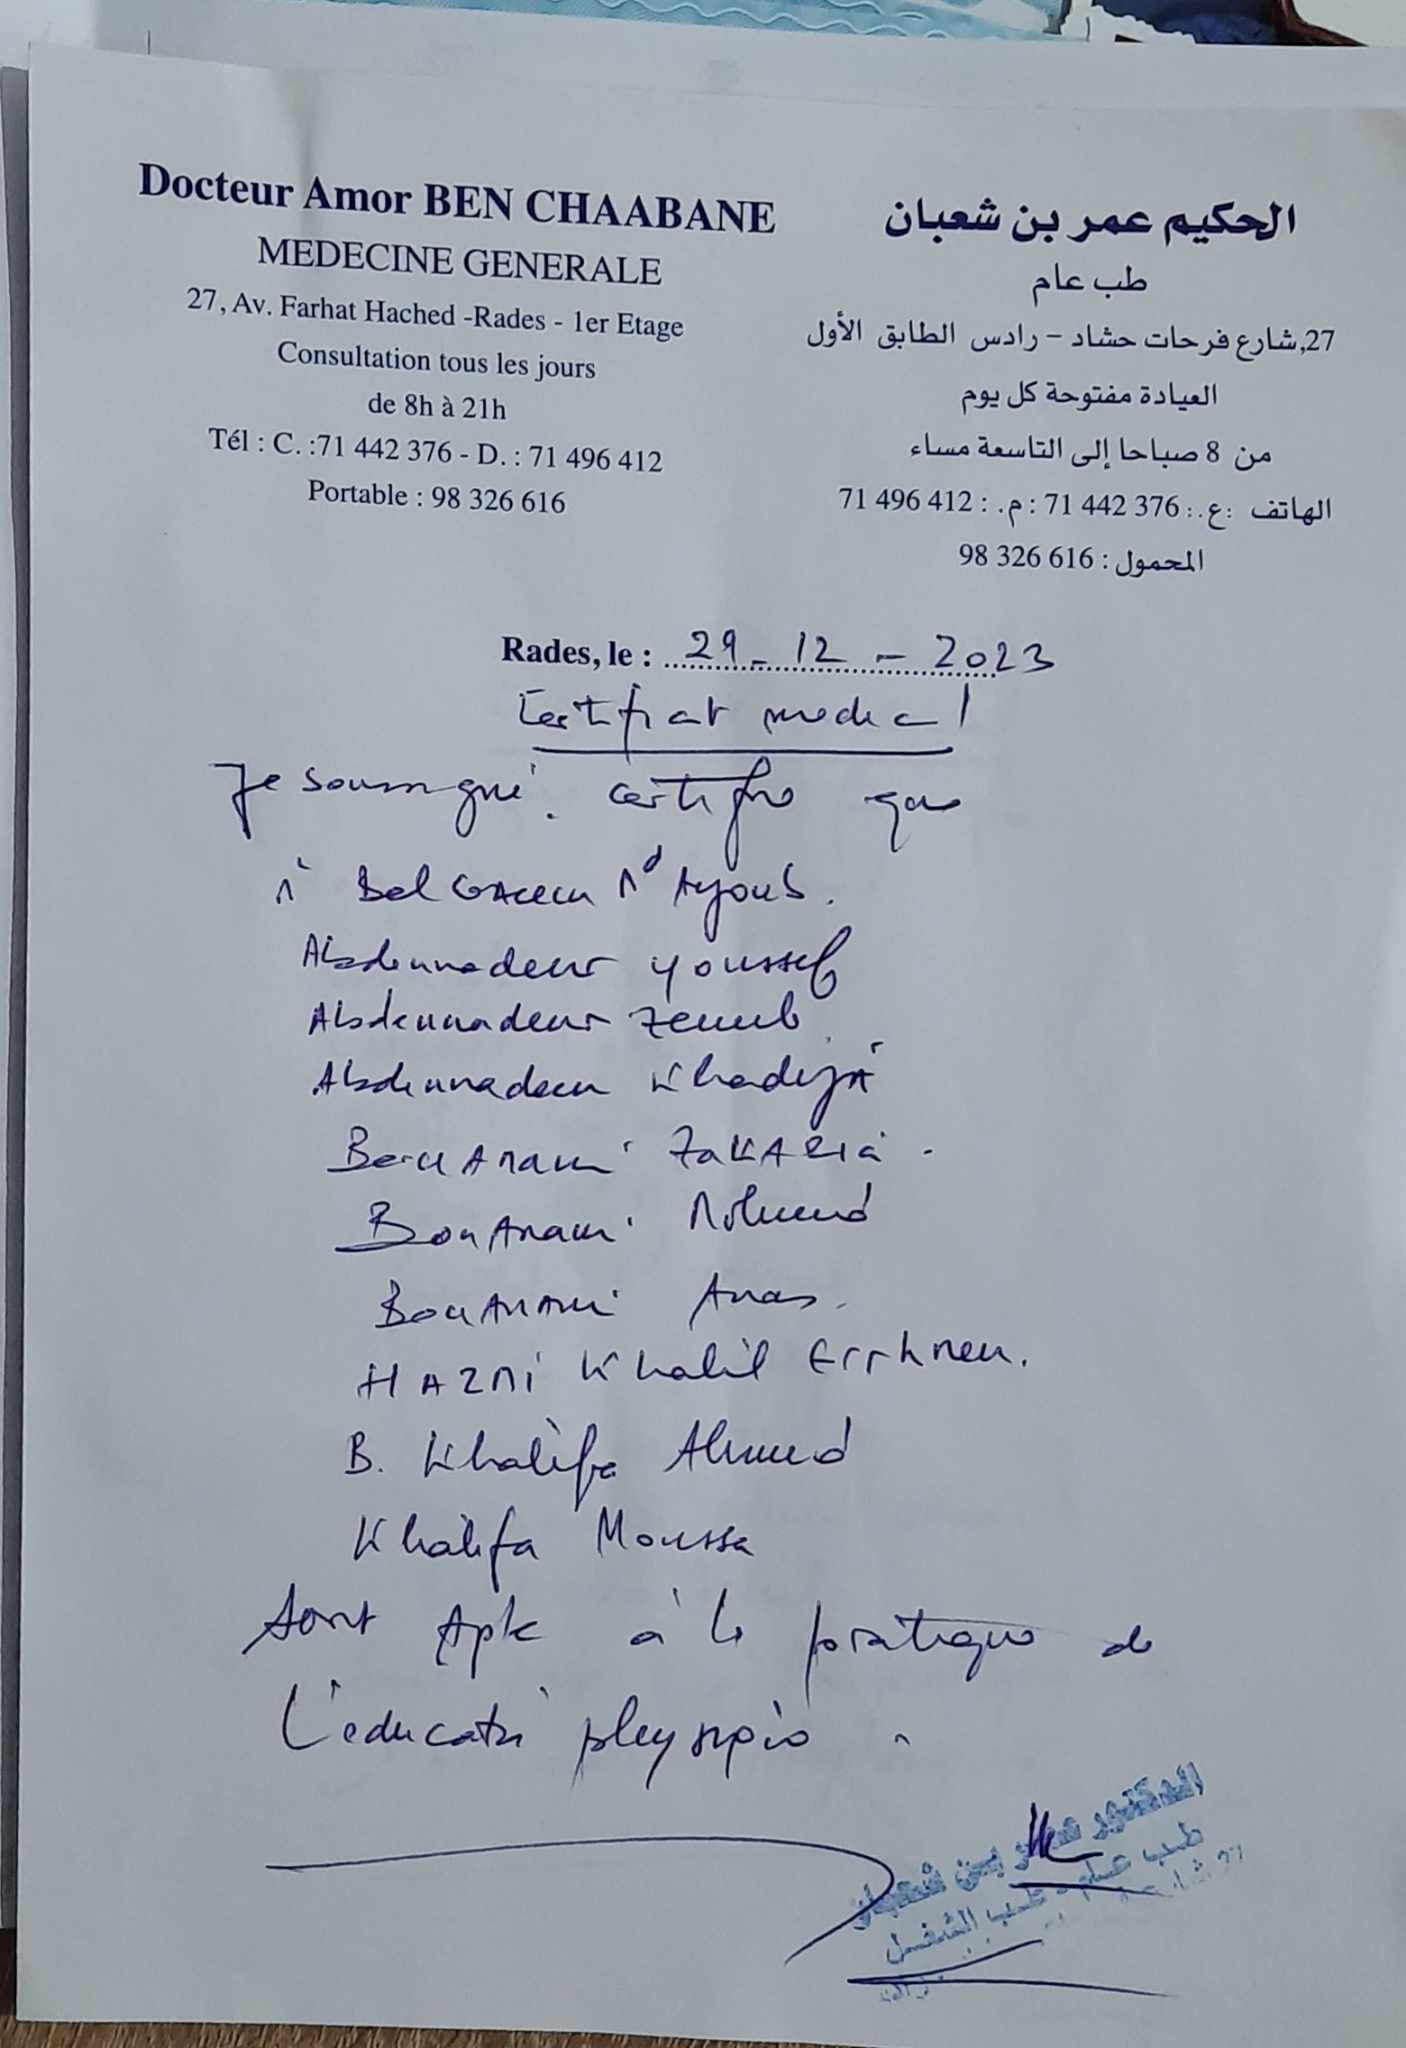 Docteur Amor BEN CHAABANE
MEDECINE GENERALE
27, Av. Farhat Hached -Rades - 1er Etage
Consultation tous les jours
de 8h à 21h
Tél : C. :71 442 376 - D. : 71 496 412
Portable : 98 326 616
الحكيم عمر بن شعبان
طب عام
27,شارع فرحات حشاد – رادس الطابق الأول
العيادة مفتوحة كل يوم
من 8 صباحا إلى التاسعة مساء
الهاتف :ع.: 71 442 376 : م. : 71 496 412
المحمول : 98 326 616
Rades, le : 29-12-2023
Certificat medical
Je soussigné certifie que
Belgacem Md Ayoub.
Abdennadeur Youssef
Abdennadeur Zeineb
Abdennadeur Khadija
ZAKARIA
Mohamed
Anas.
HAZMI Khalil
B. Khalifa Ahmed
Khalifa Moussa
Sont Apte à la pratique de
L'éducation physique
الدكتور عمر بن شعبان
طب عام - طب الشغل